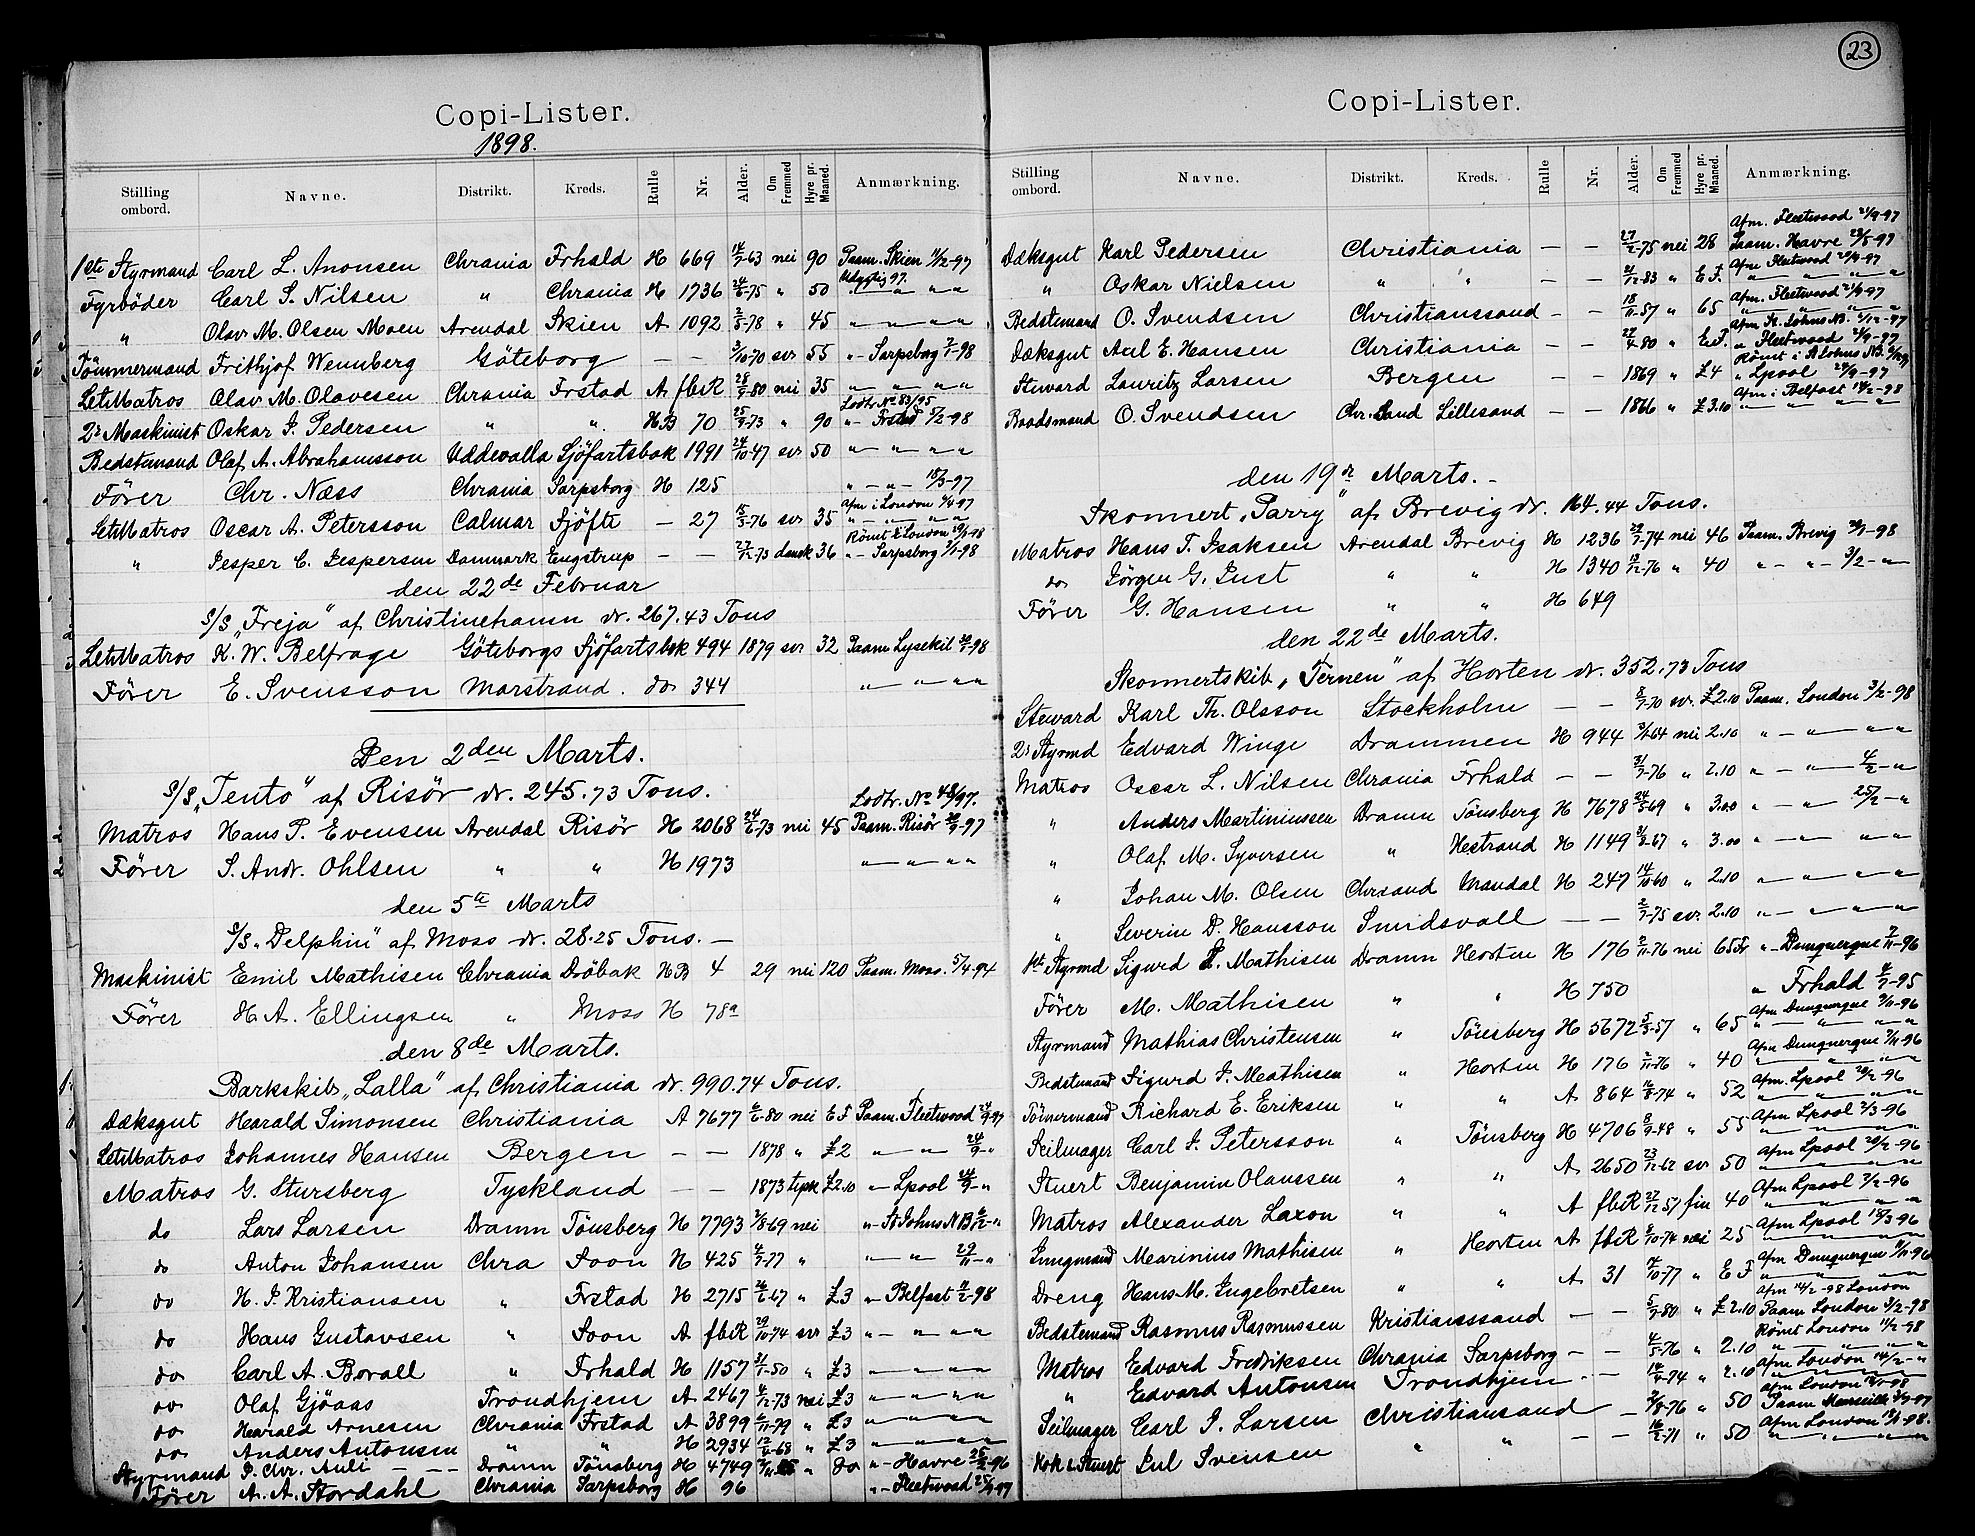 23
Copi-Lister.
1898.
Stilling ombord. Navne. Distrikt. Kreds. Rulle Nr. Alder. Om Fremmed Hyre pr. Maaned. Anmærkning.
1ste Styrmand Carl L. Anonsen Chrania Frhald H 669 nei 90 Paam. Skien 11/2-97
Fyrböder Carl S. Nilsen " Chrania H 1736 " 50 " " "
" Olav M. Olsen Moen Arendal Skien A 1092 2/5-78 " 45 " " " "
Tömmermand Frithjof Wennberg Göteborg — — 3/10-70 svr 55 "- Sarpsborg 7/1-98
LetMatros Olav M. Olavesen Chrania Frstad A fbiR 28/9-80 nei 35 " " " "
Lodtr. No 83/95
2r Maskinist Oskar J. Pedersen " " HB 70 25/9-73 " 90 "- Frstad 5/2-98
Bedstemand Olaf A. Abrahamsson Uddevalla Sjöfartsbok 1991 24/10-47 svr 50 " " " "
Förer Chr. Næss Chrania Sarpsborg H 125 " - " - 15/3-97
Afm i London
LetMatros Oscar A. Petersson Calmar Sjöfts — 27 15/5-76 svr 35 " " " "
Römt i London
" Jesper C. Jespersen Danmark Engstrup — — 27/12-73 dansk 36 "- Sarpsborg 7/1-98
den 22de Februar
S/S "Freja" af Christinehamn dr. 267.43 Tons
LetMatros K. W. Belfrage Göteborgs Sjöfartsbok 494 1879 svr 32 Paam Lysekil -98
Förer E. Svensson Marstrand. do 344 " " " "
Den 2den Marts.
S/S "Tento" af Risör dr. 245.73 Tons.
Lodtr. No 48/97.
Matros Hans P. Evensen Arendal Risör H 2068 24/6-73 nei 45 Paam. Risör -97
Förer S. Andr. Ohlsen " " H 1973 " " " "
den 5te Marts
S/S "Delphin" af Moss dr. 28.25 Tons. —
Maskinist Emil Mathisen Chrania Dröbak HB 4 29 nei 120 Paam. Moss. 5/4-94
Förer H. A. Ellingsen " Moss H 78a
den 8de Marts.
Barkskib "Lalla" af Christiania dr. 990.74 Tons.
Dæksgut Harald Simonsen Christiania A 7677 6/6-80 nei E F Paam. Fleetwood 24/9-97
LetMatros Johannes Hansen Bergen — — 1878 " £2 " " 24/9-"
Matros G. Stursberg Tyskland — — 1873 tysk £2.10 "- Lpool 24/9-"
do Lars Larsen Dramn Tönsberg H 7793 7/8-69 nei "- St Johns NB 6/12-"
do Anton Johansen Chra Soon H 425 4/7-77 " " " 29/11-"
do H. J. Kristiansen " Frstad H 2715 26/6-67 " £3 "- Belfast 11/2-98
do Hans Gustavsen " Soon A fbiR 29/10-74 svr £3 " - " " "
do Carl A. Borall " Frhald H 1157 31/1-50 " £3 " " " "
do Olaf Gjöaas Trondhjem A 2467 6/12-73 nei £3 " " " "
do Harald Arnesen Chrania Frstad A 3899 6/11-79 " £3 " " " "
do Anders Antonsen " " H 2934 12/4-68 " £3 " " " "
Styrmand P. Chr. Auli - - - Dramn Tönsberg H 4749 " do "- Havre 25/2-96
Förer A. A. Stordahl Chrania Sarpsborg H 96 "- Fleetwood 25/9-97
Copi-Lister.
Stilling ombord. Navne. Distrikt. Kreds. Rulle Nr. Alder. Om Fremmed Hyre pr. Maaned. Anmærkning.
Afm. Fleetwood 21/9-97
Dæksgut Karl Pedersen Christiania — — 27/2-75 nei 28 Paam. Havre 23/5-97
Afm Fleetwood -97
" Oskar Nielsen " " — — 31/12-83 " E F. " " " "
Afm. Fleetwood 21/9-97
Bedstemand O. Svendsen Christianssand — — 18/11-57 " 65 " " " "
Afm St. Johns NB. -97
Dæksgut Axel E. Hansen Christiania — — 22/4-80 " E F. " Fleetwood -97
Römt i St Johns NB.
Steward Lauritz Larsen Bergen — — 1869 " £4 " Lpool 24/9-97
Afm i Belfast -98
Baadsmand O. Svendsen Chr. Sand Lillesand — — 1866 " £3.10 " " " "
den 19de Marts. -
Skonnert "Parry" af Brevig dr. 164.44 Tons.
Matros Hans T. Isaksen Arendal Brevig H 1236 29/7-74 nei 46 Paam. Brevig -98
do Jörgen G. Just " " H 1340 13/12-76 " 40 " - " - 3/2-"
Förer G. Hansen " " H 649
den 22de Marts.
Skonnertskib "Ternen" af Horten dr. 352.73 Tons
Steward Karl Th. Olsson Stockholm — — 8/7-70 sv. £2.10 Paam. London 3/2-98
2r Styrmd Edvard Winge Drammen H 944 nei 2.10 " - " " "
Matros Oscar L. Nilsen Chrania Frhald — — 31/7-76 " 2.10 " - " 4/2-"
" Anders Martiniussen Dramn Tönsberg H 7678 24/5-69 " 3.00 " - " 25/2-"
" Olaf M. Syversen " Hestrand H 1149 -67 " 3.00 " - " " "
" Johan M. Olsen Chrsand Mandal H 247 14/10-60 " 2.10 " " " "
" Severin D. Hansson Smidsvall — — 2/7-75 svr. 2.10 " - " " "
1st Styrmd Sigurd J. Mathisen Dramn Horten H 176 2/11-76 nei 65 Fr "- Dunquerque 7/11-96
Förer M. Mathisen " " H 750 " Frhald -95
Afm Dunquerque 7/11-96
Styrmand Mathias Christensen " Tönsberg H 5672 5/5-57 " 65 " " " "
Afm Dunquerque 7/11-96
Bedstemand Sigurd J. Mathisen " Horten H 176 2/11-76 " 40 " " " "
Afm. Lpool 20/2-96
Tömermand Richard E. Eriksen " " A 864 16/8-74 " 52 " " " "
Afm Lpool 2/3-96
Seilmager Carl J. Petersson " Tönsberg H 4706 8/9-48 " 55 " " " "
Afm Lpool 20/2-96
Stuert Benjamin Olaussen " " A 2650 23/12-62 svr 50 " " " "
Afm Lpool 7/2-96
Matros Alexander Laxon " " A fbiR 27/12-57 fin 40 " " " "
Afm Lpool 18/3-96
Jungmand Marinius Mathisen " Horten A fbiR 8/10-74 nei 25 " " " "
Afm Dunquerque -96
Dreng Hans M. Ingebretsen " " A 31 4/10-77 " E F " " " "
Afm 14/2-98 London
Bedstemand Rasmus Rasmussen Kristianssand — — 5/7-80 " £2.10 Paam London 3/2-98
Römt London 11/2-98
Matros Edvard Fredriksen Chrania Sarpsborg — — 4/5-76 " 2.10 " " " "
Afm London 14/2-"
" Edvard Antonsen Trondhjem. - — 14/4-74 " 2.10 " " " "
Afm London -98
Seilmager Carl J. Larsen Christiansand — 7/8-76 " 50 Paam Marseille -97
Afm London -98.
Kok & Stuert Jul Svensen " " — — 16/2-71 " 50 " " " "